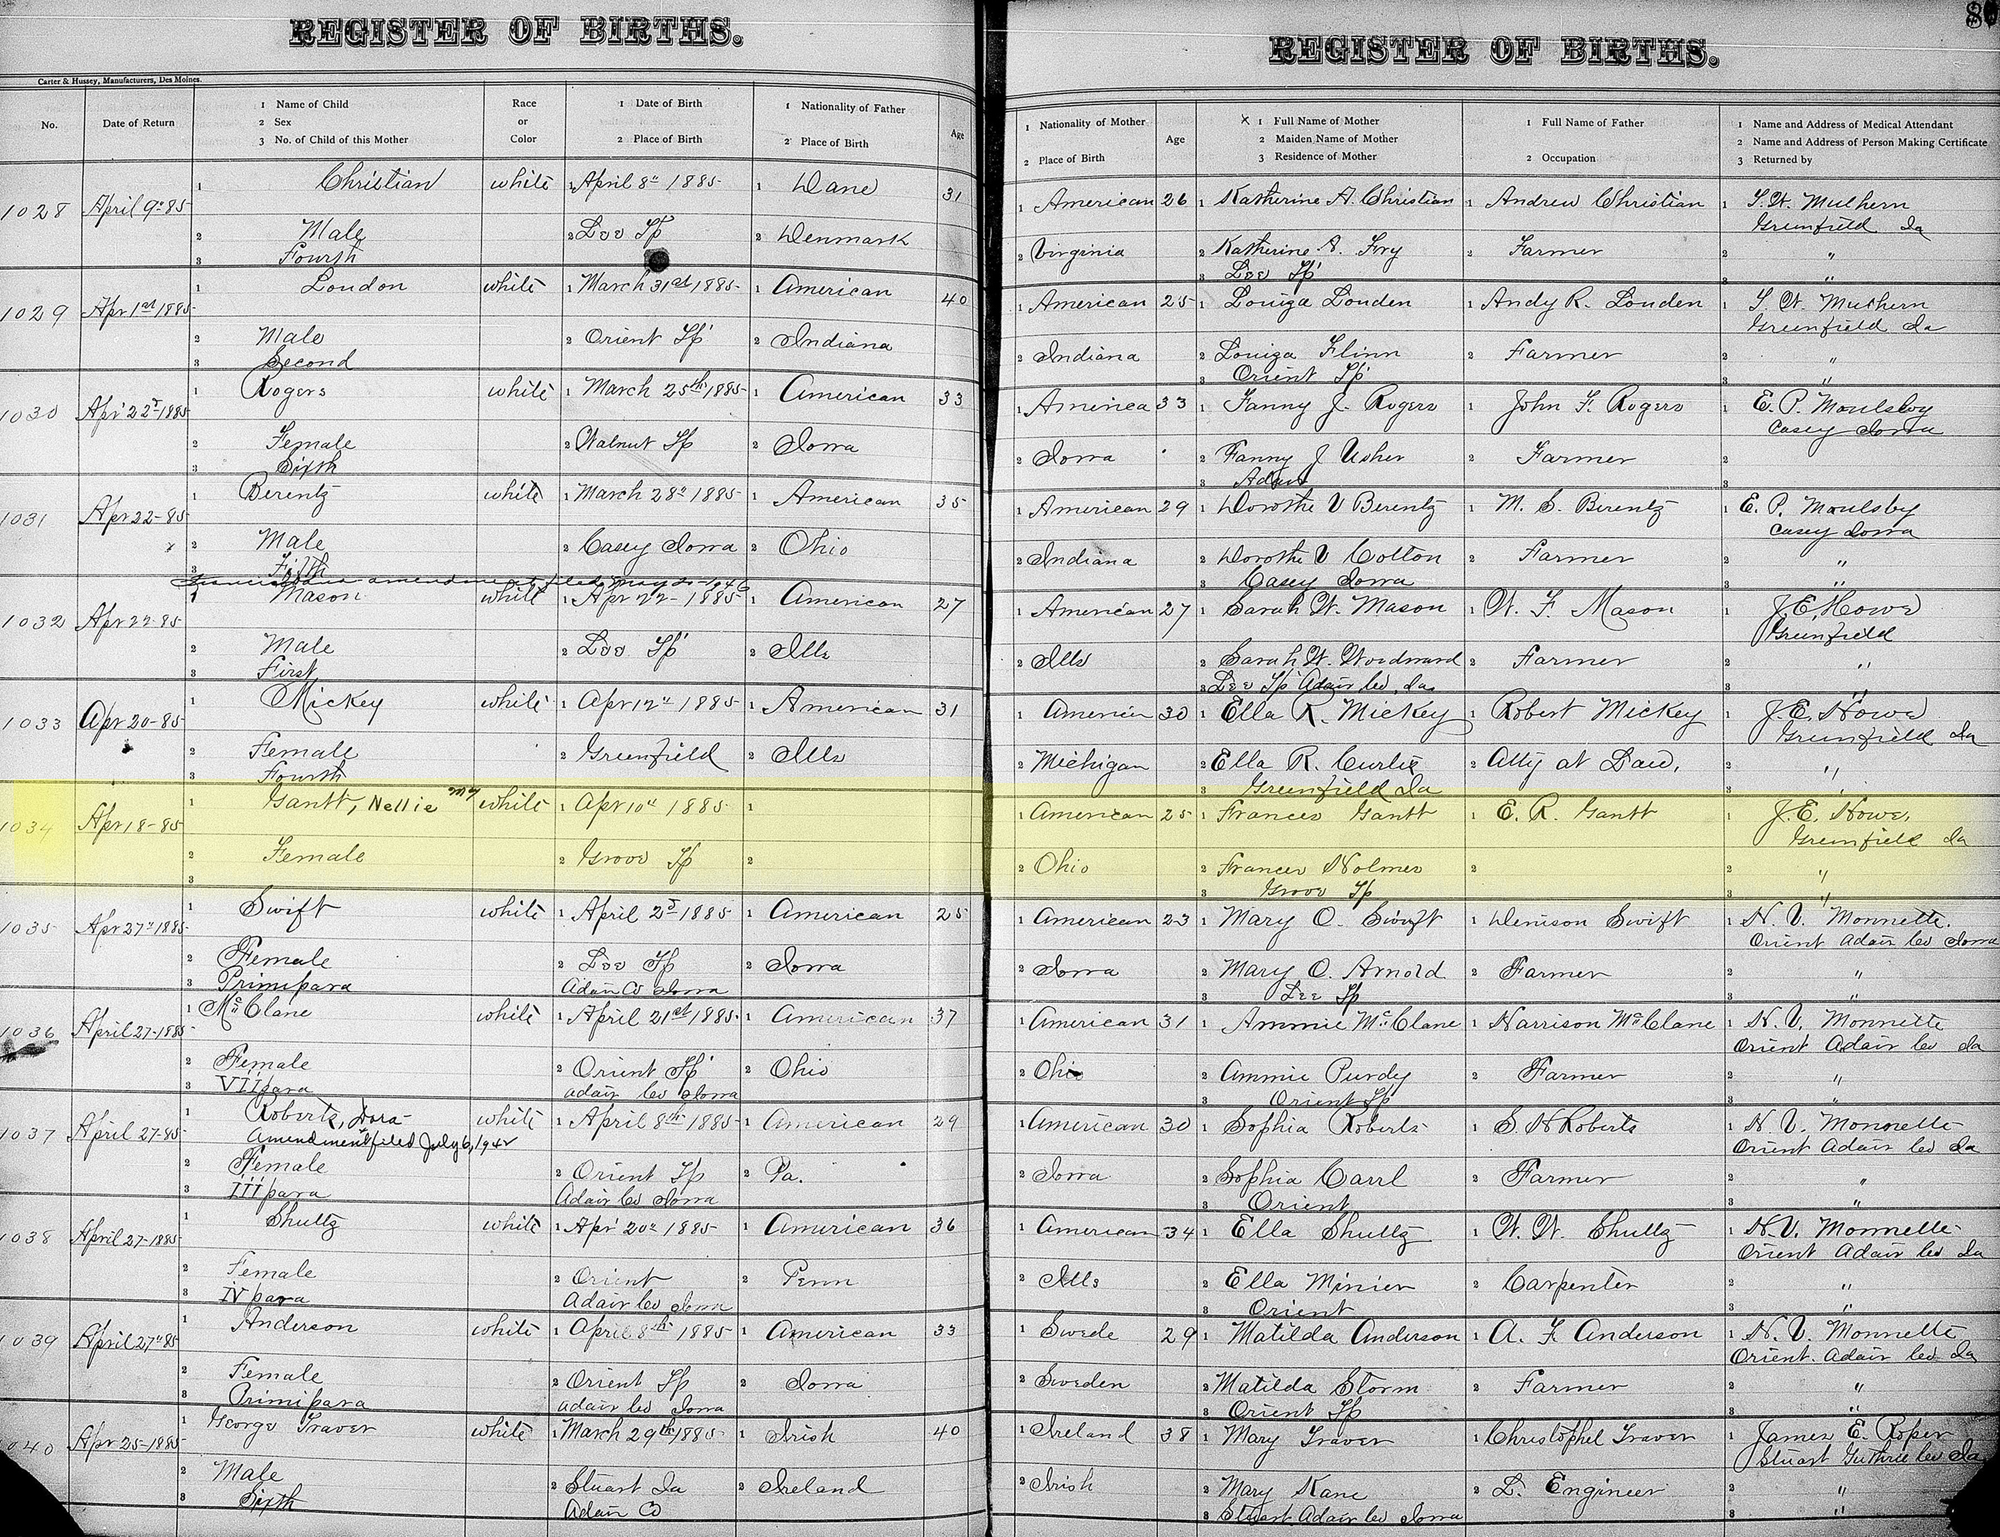 REGISTER OF BIRTHS.
Carter & Hussey, Manufacturers, Des Moines.
No.
Date of Return
1 Name of Child
2 Sex
3 No. of Child of this Mother
Race
or
Color
1 Date of Birth
2 Place of Birth
1 Nationality of Father
2 Place of Birth
Age
1028 April 9th 85 1 Christian white 1 April 8th 1885 1 Dane 31
2 Male 2 Lee Tp 2 Denmark
3 Fourth
1029 Apr 1st 1885 1 London white 1 March 31st 1885 1 American 40
2 Male 2 Orient Tp 2 Indiana
3 Second
1030 Apr 22d 1885 1 Rogers white 1 March 25th 1885 1 American 33
2 Female 2 Walnut Tp 2 Iowa
3 Sixth
1031 Apr 22-85 1 Berentz white 1 March 28th 1885 1 American 35
2 Male 2 Casey Iowa 2 Ohio
3 Fifth
amendment filed May 21-1946
1032 Apr 22-85 1 Mason white 1 Apr 22-1885 1 American 27
2 Male 2 Lee Tp 2 Ills
3 First
1033 Apr 20-85 1 Mickey white 1 Apr 12th 1885 1 American 31
2 Female 2 Greenfield 2 Ills
3 Fourth
1034 Apr 18-85 1 Gantt, Nellie white 1 Apr 10th 1885 1
2 Female 2 Grove Tp 2
3
1035 Apr 27th 1885 1 Swift white 1 April 2d 1885 1 American 25
2 Female 2 Lee Tp 2 Iowa
3 Primipara Adair Co Iowa
1036 April 27-1885 1 McClane white 1 April 21st 1885 1 American 37
2 Female 2 Orient Tp 2 Ohio
3 VII para Adair Co Iowa
1037 April 27-85 1 Roberts, Dora white 1 April 8th 1885 1 American 29
Amendment filed July 6, 1942
2 Female 2 Orient Tp 2 Pa.
3 III para Adair Co Iowa
1038 April 27-1885 1 Shultz white 1 Apr 20th 1885 1 American 36
2 Female 2 Orient 2 Penn
3 IV para Adair Co Iowa
1039 April 27th 85 1 Anderson white 1 April 8th 1885 1 American 33
2 Female 2 Orient Tp 2 Iowa
3 Primipara Adair Co Iowa
1040 Apr 25-1885 1 George Traver white 1 March 29th 1885 1 Irish 40
2 Male 2 Stuart Ia 2 Ireland
3 Sixth Adair Co
REGISTER OF BIRTHS.
1 Nationality of Mother
2 Place of Birth
Age
X 1 Full Name of Mother
2 Maiden Name of Mother
3 Residence of Mother
1 Full Name of Father
2 Occupation
1 Name and Address of Medical Attendant
2 Name and Address of Person Making Certificate
3 Returned by
1 American 26 1 Katherine A. Christian 1 Andrew Christian 1 S. W. Mulhern
Greenfield Ia
2 Virginia 2 Katherine A. Fry 2 Farmer 2 "
3 Lee Tp 3 "
1 American 25 1 Louiza Louden 1 Andy R. Louden 1 S. W. Mulhern
Greenfield Ia
2 Indiana 2 Louiza Flinn 2 Farmer 2 "
3 Orient Tp 3 "
1 America 33 1 Fanny J. Rogers 1 John F. Rogers 1 E. P. Moulsby
Casey Iowa
2 Iowa 2 Fanny J Usher 2 Farmer 2
3 Adair 3
1 American 29 1 Dorothe V Berentz 1 M. S. Berentz 1 E. P. Moulsby
Casey Iowa
2 Indiana 2 Dorothe V Colton 2 Farmer 2 "
3 Casey Iowa 3 "
1 American 27 1 Sarah W. Mason 1 W. F. Mason 1 J. E. Howe
Greenfield
2 Ills 2 Sarah W. Woodward 2 Farmer 2 "
3 Lee Tp Adair Co, Ia 3 "
1 American 30 1 Ella R. Mickey 1 Robert Mickey 1 J. E. Howe
Greenfield Ia
2 Michigan 2 Ella R. Curtis 2 Atty at Law, 2 "
3 Greenfield Ia 3 "
1 American 25 1 Frances Gantt 1 E. R. Gantt 1 J. E. Howe,
Greenfield Ia
2 Ohio 2 Frances Holmes 2 2 "
3 Grove Tp 3 "
1 American 23 1 Mary O. Swift 1 Denison Swift 1 N. V. Monnette.
Orient Adair Co Iowa
2 Iowa 2 Mary O. Arnold 2 Farmer 2 "
3 Lee Tp 3 "
1 American 31 1 Ammie McClane 1 Harrison McClane 1 N. V. Monnette
Orient Adair Co Ia
2 Ohio 2 Ammie Purdy 2 Farmer 2 "
3 Orient Tp 3 "
1 American 30 1 Sophia Roberts 1 S. N Roberts 1 N. V. Monnette
Orient Adair Co Ia
2 Iowa 2 Sophia Carrl 2 Farmer 2 "
3 Orient 3 "
1 American 34 1 Ella Shultz 1 W. W. Shultz 1 N. V. Monnette
Orient Adair Co Ia
2 Ills 2 Ella Minier 2 Carpenter 2 "
3 Orient 3 "
1 Swede 29 1 Matilda Anderson 1 A. F. Anderson 1 N. V. Monnette
Orient. Adair Co Ia
2 Sweden 2 Matilda Storm 2 Farmer 2 "
3 Orient Tp 3 "
1 Ireland 38 1 Mary Traver 1 Christophel Traver 1 James E. Roper
Stuart Guthrie Co Ia
2 Irish 2 Mary Kane 2 L. Engineer 2 "
3 Stuart Adair Co Iowa 3 "